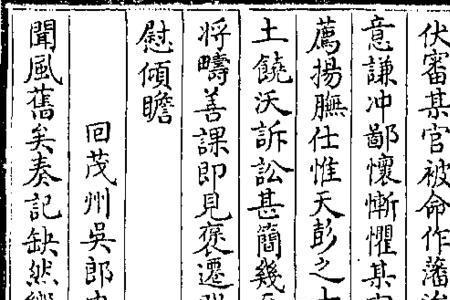 伏審某官被命作藩
意謙冲鄙懷慚懼某
薦揚膴仕惟天彭之
土饒沃訴訟甚簡幾
将疇善課即見褒遷
慰傾瞻
回茂州吳郎
聞風舊矣奏記缺然